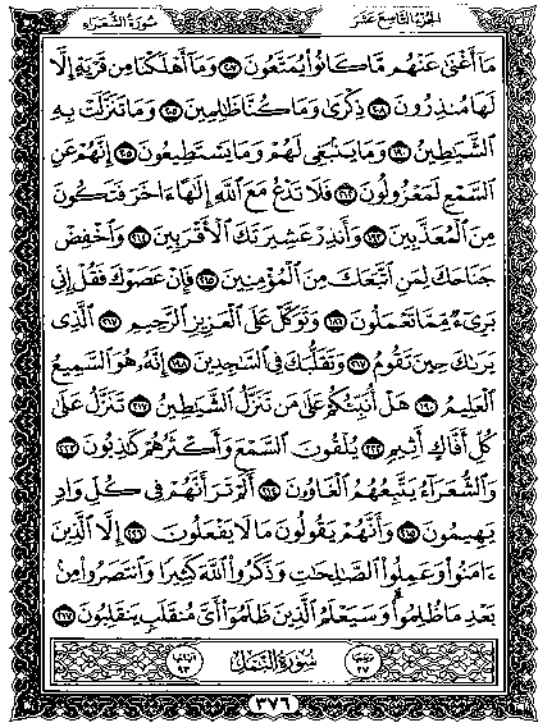 الجزء التاسع عشر
سورة الشعراء
مَآ أَغْنَىٰ عَنْهُم مَّا كَانُوا۟ يُمَتَّعُونَ ۝ وَمَآ أَهْلَكْنَا مِن قَرْيَةٍ إِلَّا
لَهَا مُنذِرُونَ ۝ ذِكْرَىٰ وَمَا كُنَّا ظَٰلِمِينَ ۝ وَمَا تَنَزَّلَتْ بِهِ
ٱلشَّيَٰطِينُ ۝ وَمَا يَنۢبَغِى لَهُمْ وَمَا يَسْتَطِيعُونَ ۝ إِنَّهُمْ عَنِ
ٱلسَّمْعِ لَمَعْزُولُونَ ۝ فَلَا تَدْعُ مَعَ ٱللَّهِ إِلَٰهًا ءَاخَرَ فَتَكُونَ
مِنَ ٱلْمُعَذَّبِينَ ۝ وَأَنذِرْ عَشِيرَتَكَ ٱلْأَقْرَبِينَ ۝ وَٱخْفِضْ
جَنَاحَكَ لِمَنِ ٱتَّبَعَكَ مِنَ ٱلْمُؤْمِنِينَ ۝ فَإِنْ عَصَوْكَ فَقُلْ إِنِّى
بَرِىٓءٌ مِّمَّا تَعْمَلُونَ ۝ وَتَوَكَّلْ عَلَى ٱلْعَزِيزِ ٱلرَّحِيمِ ۝ ٱلَّذِى
يَرَىٰكَ حِينَ تَقُومُ ۝ وَتَقَلُّبَكَ فِى ٱلسَّٰجِدِينَ ۝ إِنَّهُۥ هُوَ ٱلسَّمِيعُ
ٱلْعَلِيمُ ۝ هَلْ أُنَبِّئُكُمْ عَلَىٰ مَن تَنَزَّلُ ٱلشَّيَٰطِينُ ۝ تَنَزَّلُ عَلَىٰ
كُلِّ أَفَّاكٍ أَثِيمٍ ۝ يُلْقُونَ ٱلسَّمْعَ وَأَكْثَرُهُمْ كَٰذِبُونَ ۝
وَٱلشُّعَرَآءُ يَتَّبِعُهُمُ ٱلْغَاوُۥنَ ۝ أَلَمْ تَرَ أَنَّهُمْ فِى كُلِّ وَادٍ
يَهِيمُونَ ۝ وَأَنَّهُمْ يَقُولُونَ مَا لَا يَفْعَلُونَ ۝ إِلَّا ٱلَّذِينَ
ءَامَنُوا۟ وَعَمِلُوا۟ ٱلصَّٰلِحَٰتِ وَذَكَرُوا۟ ٱللَّهَ كَثِيرًا وَٱنتَصَرُوا۟ مِنۢ
بَعْدِ مَا ظُلِمُوا۟ وَسَيَعْلَمُ ٱلَّذِينَ ظَلَمُوٓا۟ أَىَّ مُنقَلَبٍ يَنقَلِبُونَ ۝
ترتيبها ٢٧ سورة النمل آياتها ٩٣
٣٧٦